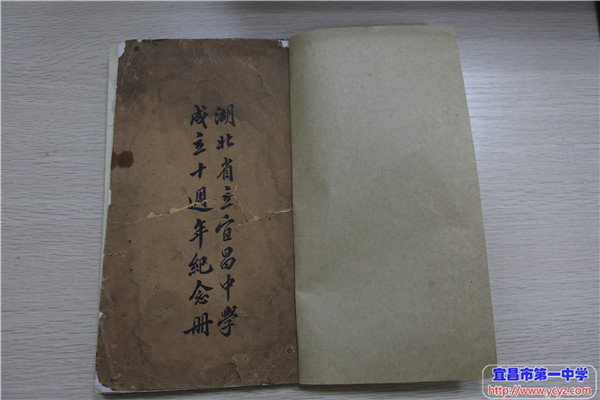 湖北省立宜昌中學
成立十週年紀念册
宜昌市第一中学
http://www.ycyz.com